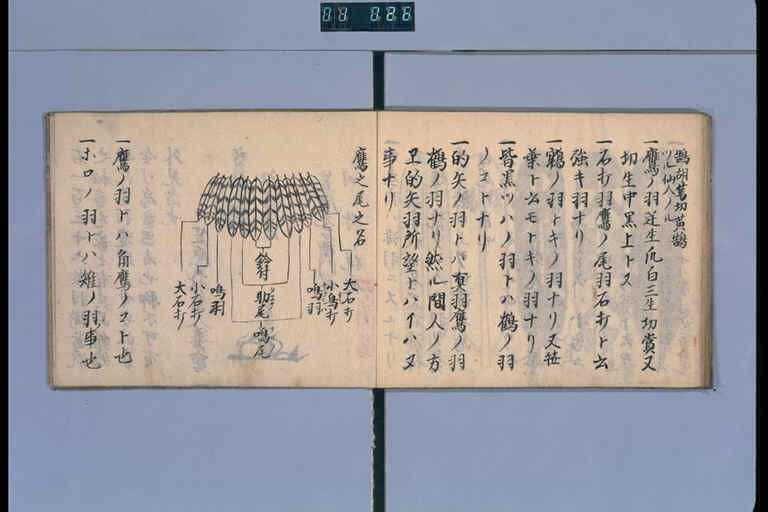 01 028
鵠胡 切黄鶴
ツル仙人ノル
一鷹ノ羽 生 白三生切賞又
切生中黒上トス
一石打羽鷹ノ尾羽石打ト云
強キ羽ナリ
一鶴ノ羽トキノ羽ナリ又
葉ト云モトキノ羽ナリ
一皆黒ツハノ羽トハ鶴ノ羽
ノコトナリ
一的矢ノ羽トハ真羽鷹ノ羽
鶴ノ羽ナリ然ル間人ノ方
的矢羽所望トハイハヌ
事ナリ
鷹之尾之名
大石打
小鳥打
鳴羽
鈴付
助尾
鳴尾
鳴羽
小石打
大石打
一鷹ノ羽トハ角鷹ノコト也
一ホロノ羽トハ雉ノ羽事也